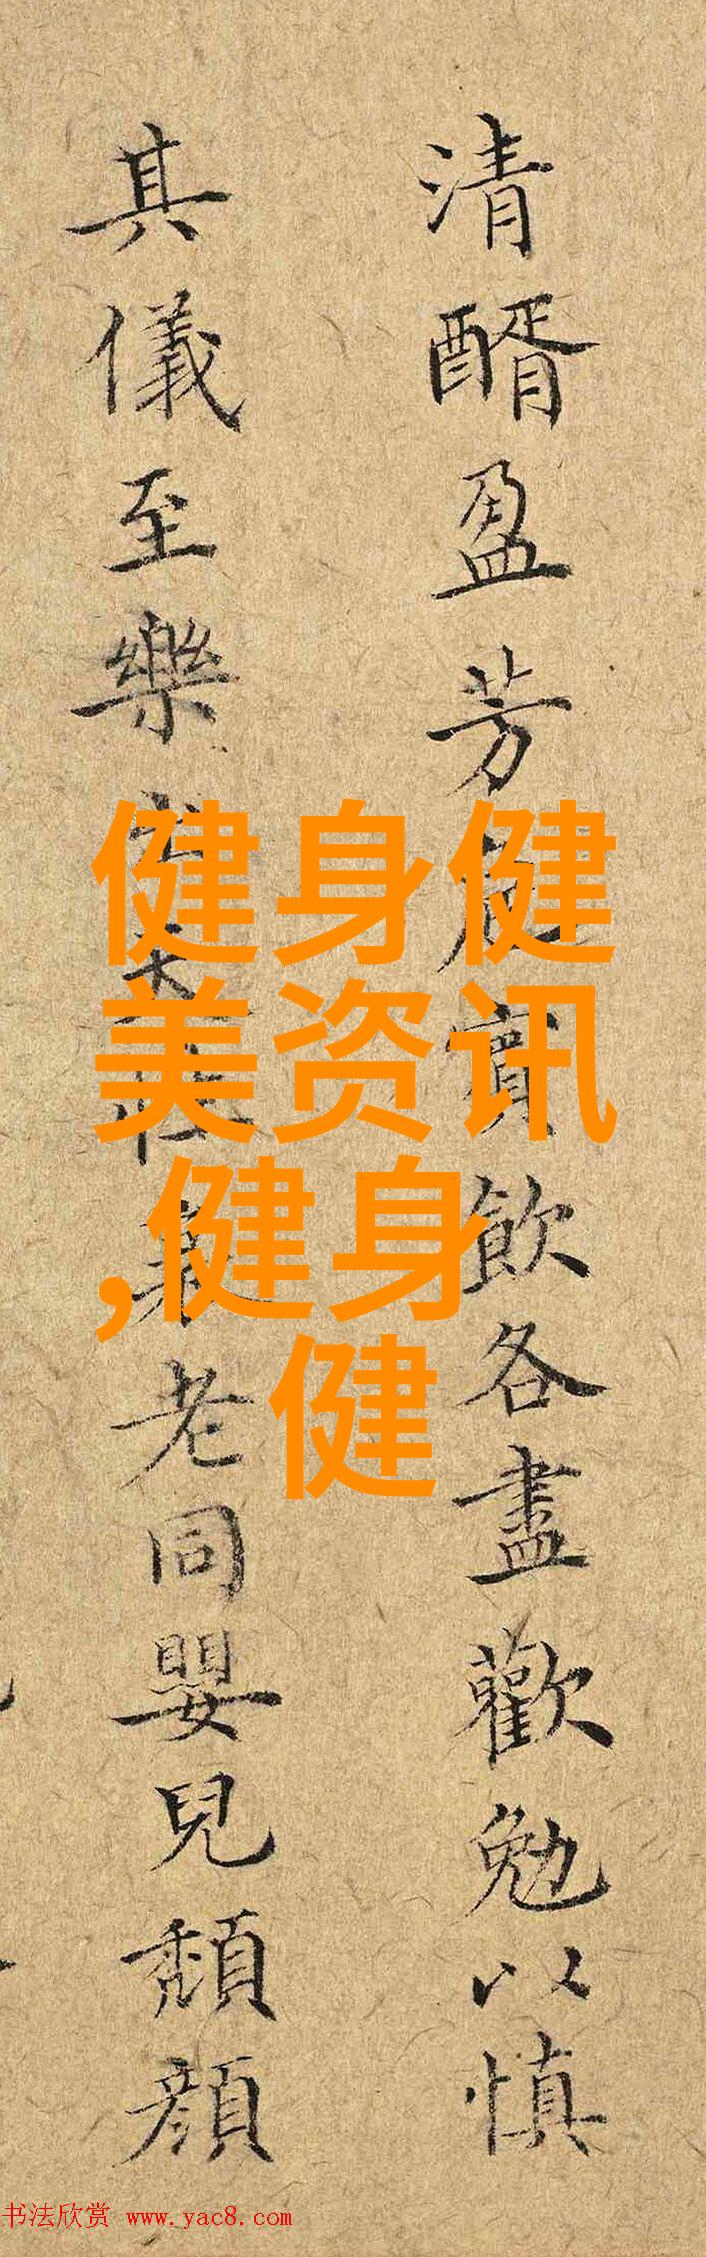 清醑盈芳卮賓飲各盡歡勉以慎
其儀至樂老同嬰兒頹顏
健身健
美资讯
,健身
健
书法欣赏 www.yac8.com